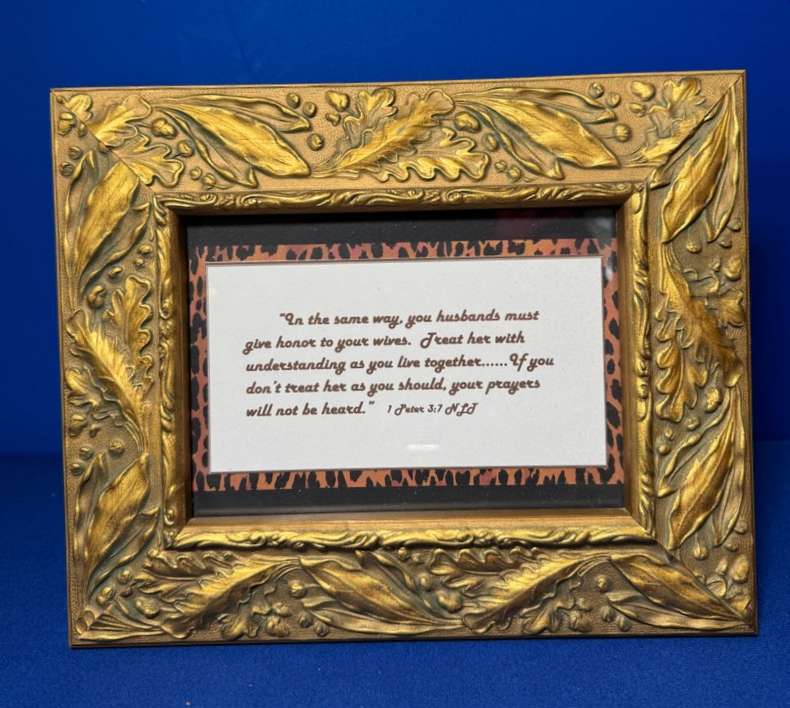 "In the same way, you husbands must
give honor to your wives. Treat her with
understanding as you live together......If you
don't treat her as you should, your prayers
will not be heard." 1 Peter 3:7 NLT